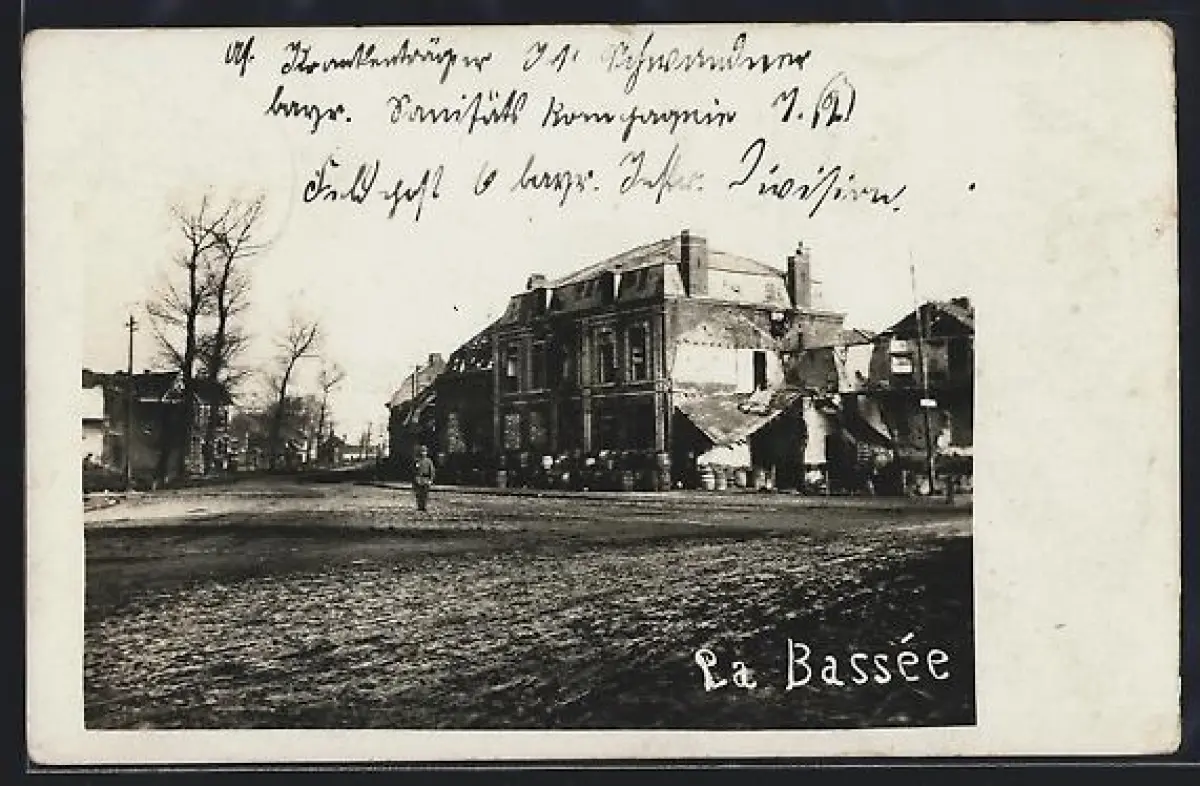 Krankenträger Schwandner
bayr. Sanitäts Kompagnie
Feldpost 6 bayr. Division.
La Bassée